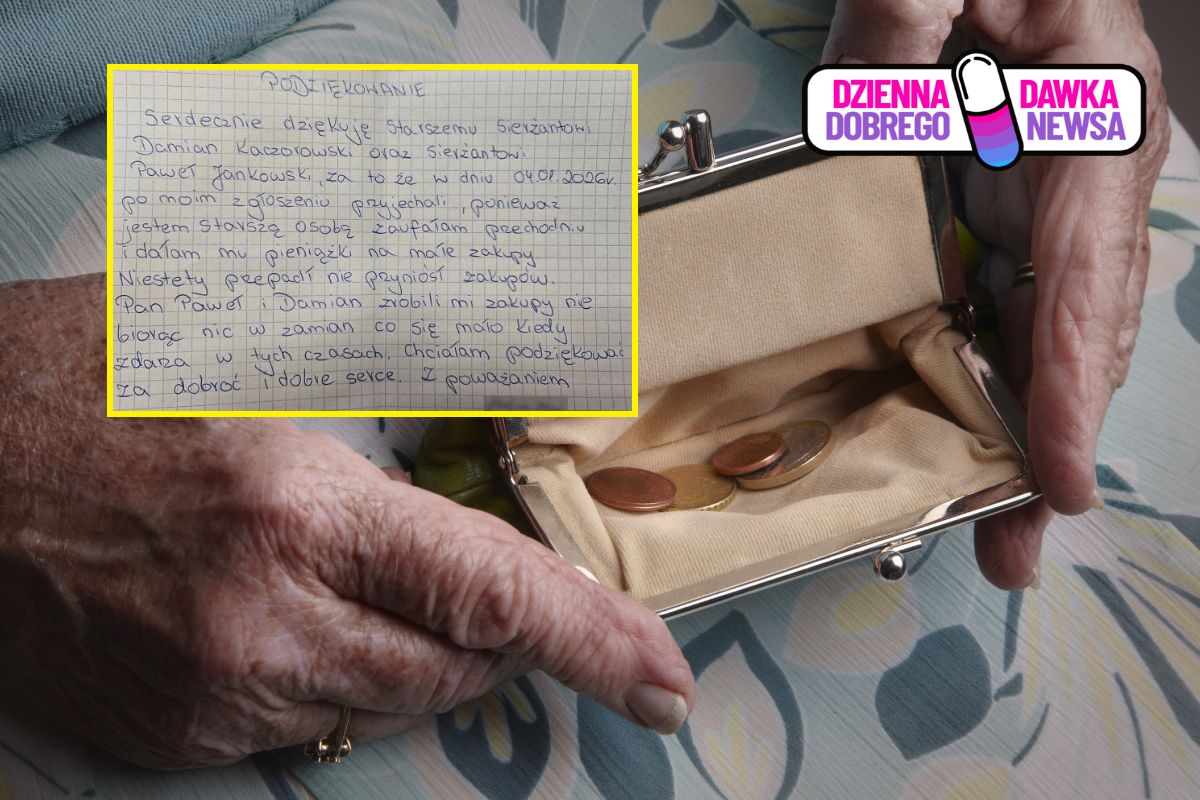 PODZIĘKOWANIE
Serdecznie dziękuję Starszemu Sierżantowi
Damian Kaczorowski oraz Sierżantowi
Paweł Jankowski, za to że w dniu 04.01.2026r.
po moim zgłoszeniu przyjechali, ponieważ
jestem starszą osobą zaufałam przechodniu
i dałam mu pieniążki na małe zakupy
Niestety przepadł nie przyniósł zakupów.
Pan Paweł i Damian zrobili mi zakupy nie
biorąc nic w zamian co się mało kiedy
zdarza w tych czasach. Chciałam podziękować
za dobroć i dobre serce. Z poważaniem
DZIENNA DAWKA
DOBREGO NEWSA